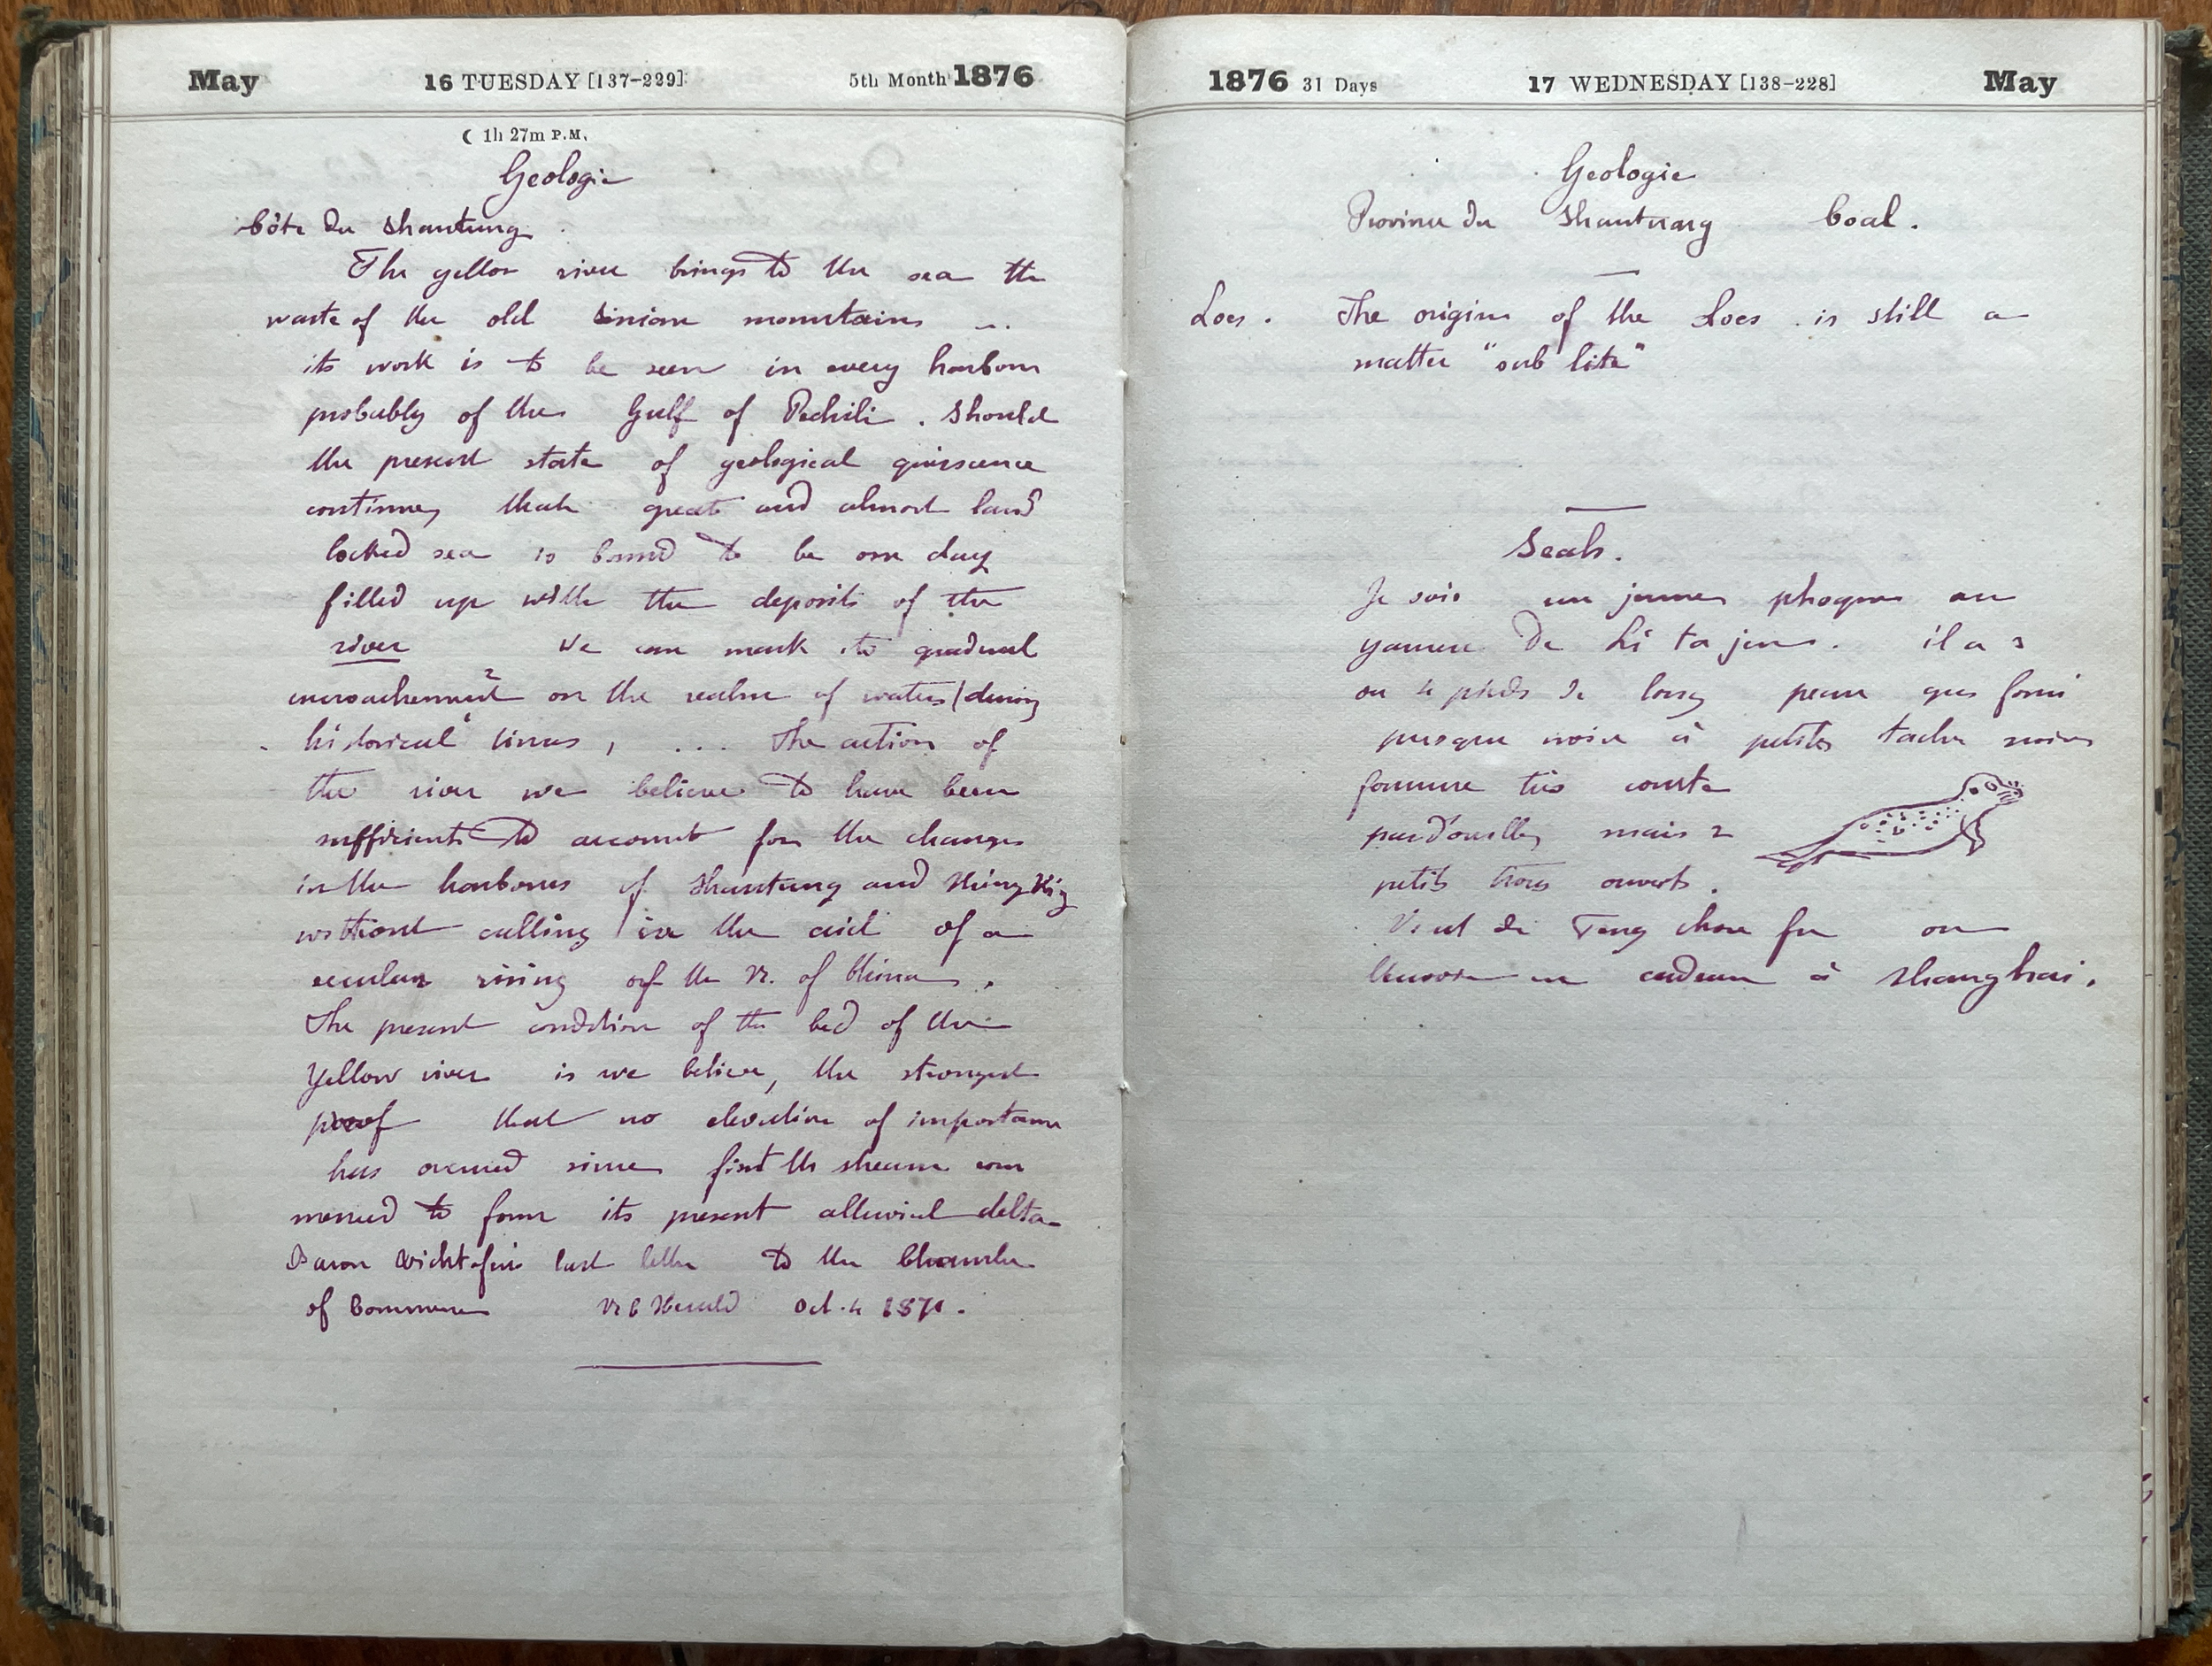 May 16 TUESDAY [137-229] 5th Month 1876
☾ 1h 27m P.M.
Geologie
Côte du Shantung
The yellow river brings to the sea the
waste of the old Sinian mountains ...
its work is to be seen in every harbour
probably of the Gulf of Pechili. Should
the present state of geological quiescence
continue, that great and almost land
locked sea is bound to be one day
filled up with the deposits of the
river We can mark its gradual
encroachement on the realm of waters during
historical times, ... The action of
the river we believe to have been
sufficient to account for the changes
in the harbours of Shantung and Shing King
without calling in the aid of a
secular rising of the N. of China.
The present condition of the bed of the
Yellow river is we believe, the strongest
proof that no elevation of importance
has occured since first the stream com
menced to form its present alluvial delta
Baron Richtofen's last letter to the Chamber
of Commerce N C Herald Oct. 4 1871.
1876 31 Days 17 WEDNESDAY [138-228] May
Geologie
Province du Shantung Coal.
Loes. The origin of the Loes is still a
matter "sub lite"
Seals.
Je vois un jeune phoque au
yamen de Li ta jen. il a 3
ou 4 pieds de long peau gris foncé
presque noire à petites taches noires
fourrure très courte
pas d'oreilles mais 2
petits trous ouverts.
Vient de Teng chou fu on
l'envoie en cadeau à Shanghai.